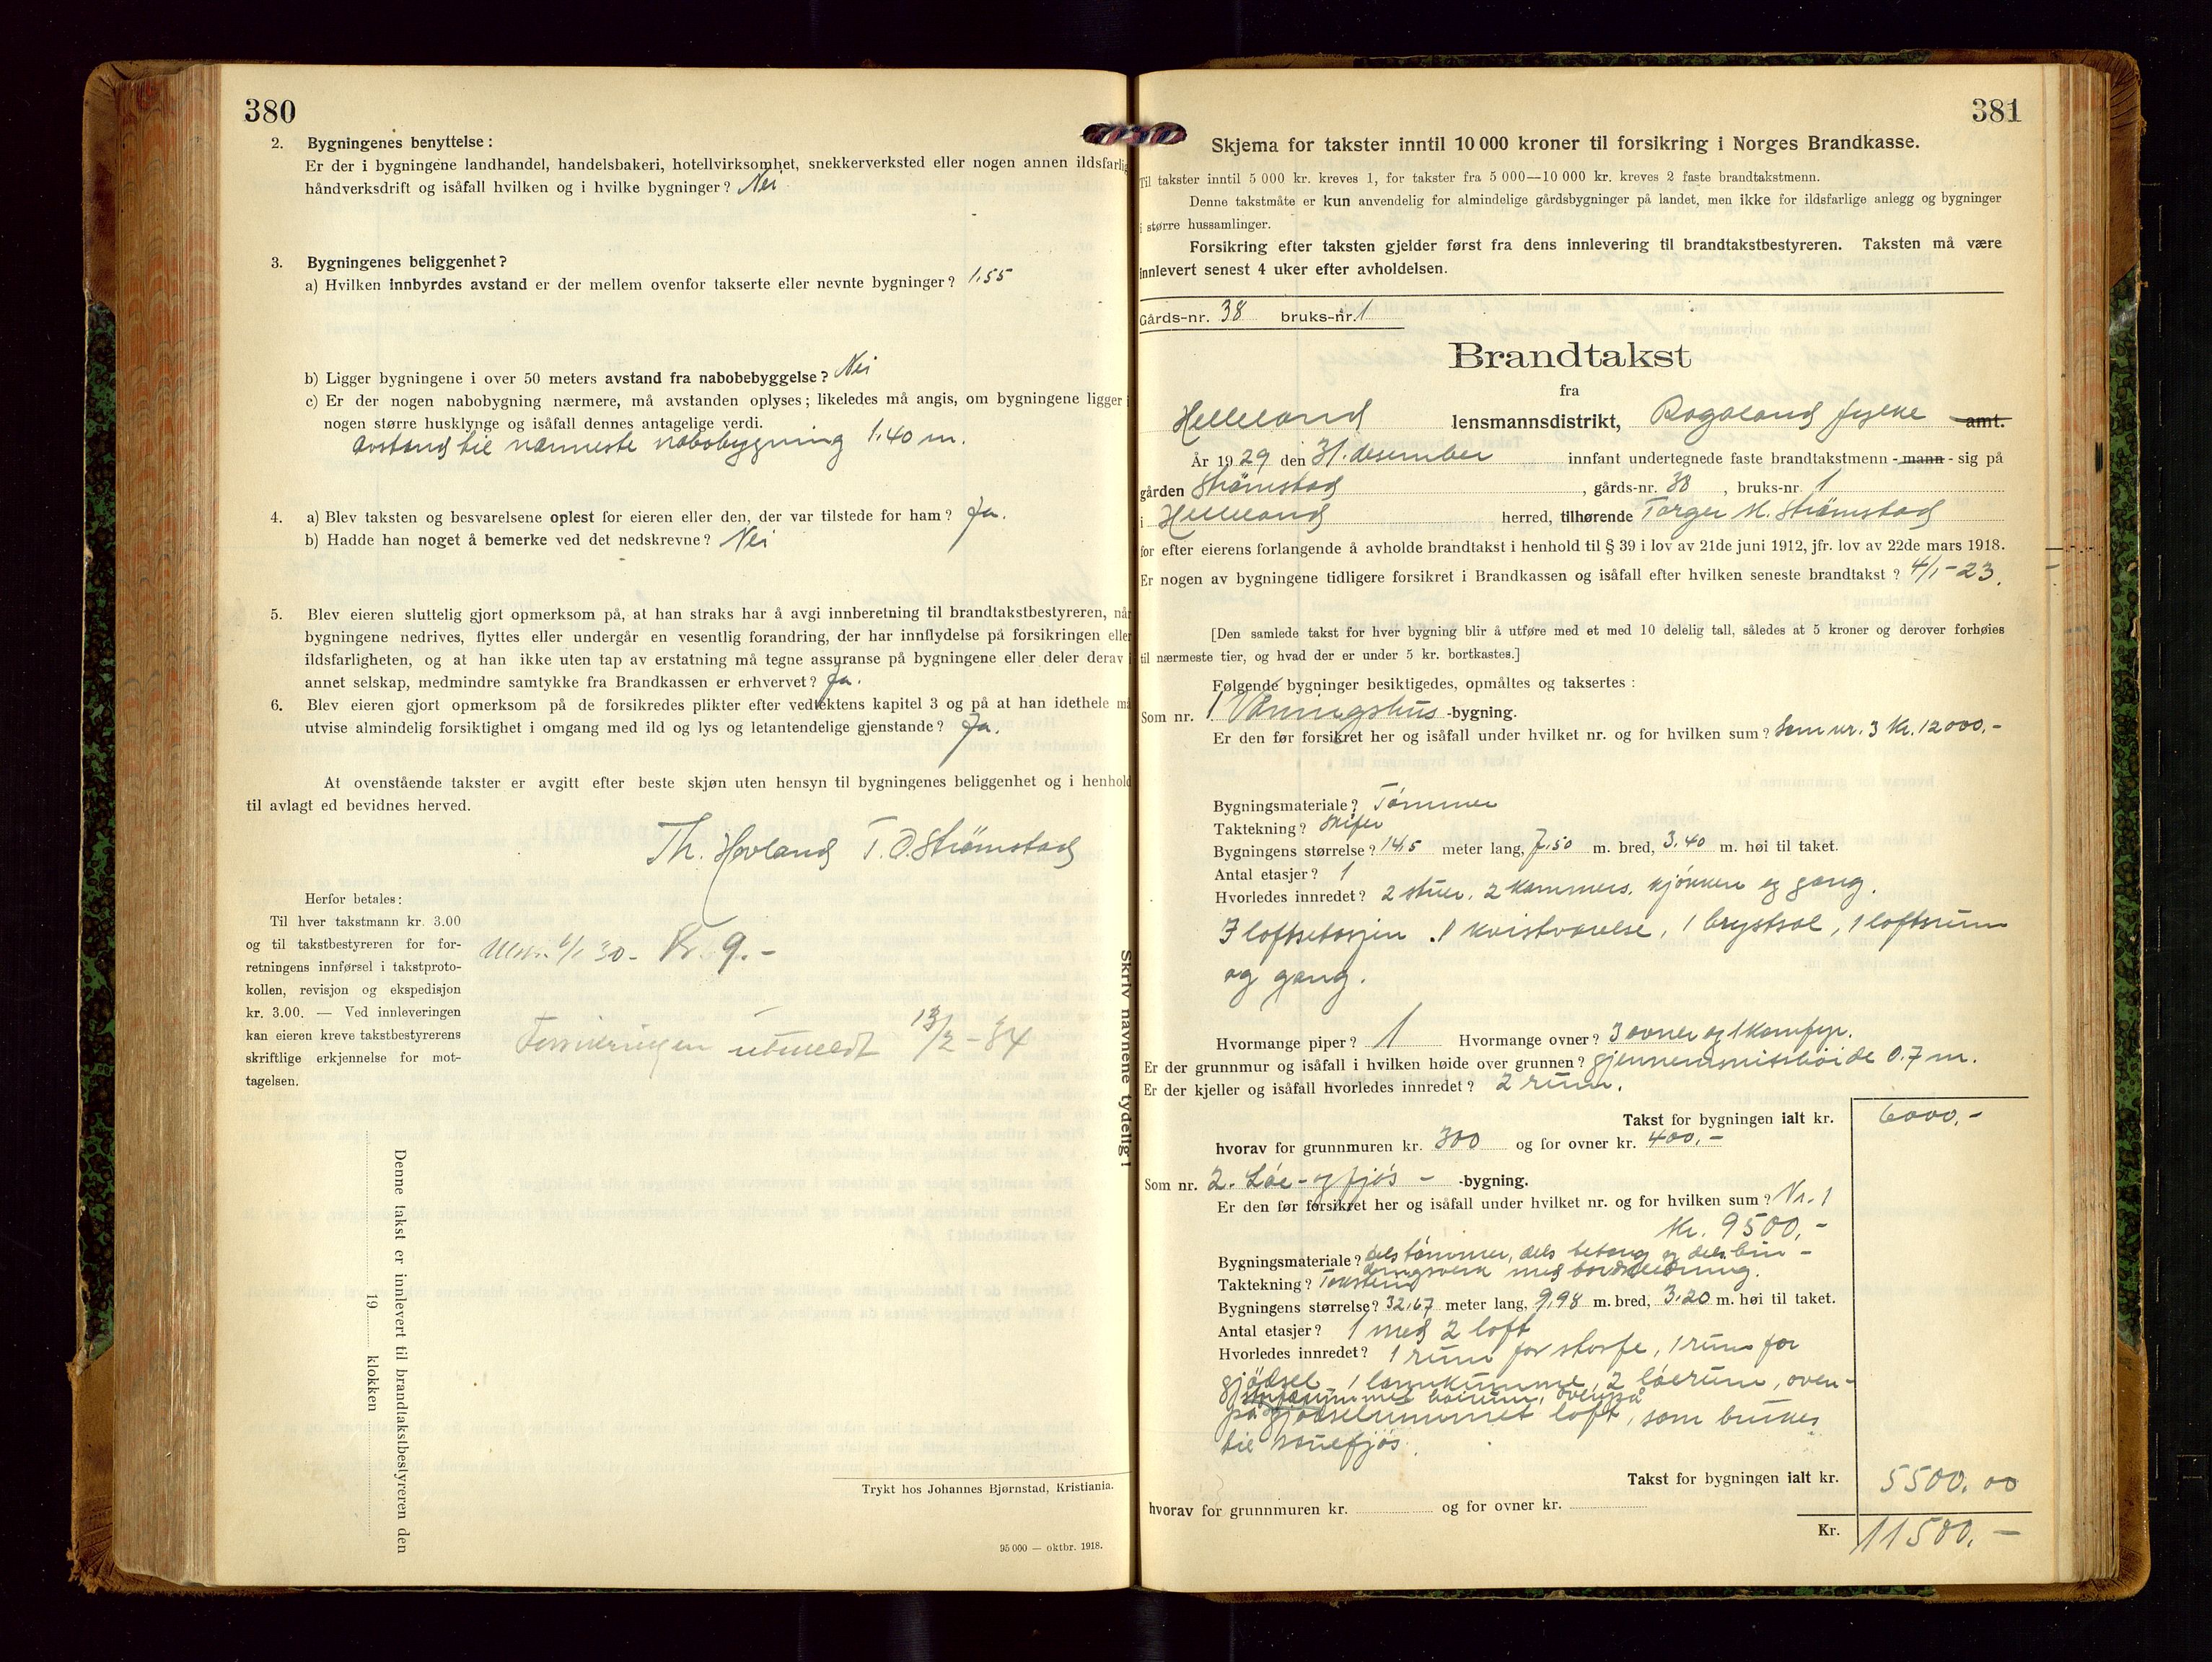 380
2. Bygningenes benyttelse:
Er der i bygningene landhandel, handelsbakeri, hotellvirksomhet, snekkerverksted eller nogen annen ildsfarlig
håndverksdrift og isåfall hvilken og i hvilke bygninger? Nei
3. Bygningenes beliggenhet?
a) Hvilken innbyrdes avstand er der mellem ovenfor takserte eller nevnte bygninger? 1,55
b) Ligger bygningene i over 50 meters avstand fra nabobebyggelse? Nei
c) Er der nogen nabobygning nærmere, må avstanden oplyses; likeledes må angis, om bygningene ligger i
nogen større husklynge og isåfall dennes antagelige verdi.
Avstand til nærmeste nabobygning 1.40 m.
4. a) Blev taksten og besvarelsene oplest for eieren eller den, der var tilstede for ham? Ja.
b) Hadde han noget å bemerke ved det nedskrevne? Nei
5. Blev eieren sluttelig gjort opmerksom på, at han straks har å avgi innberetning til brandtakstbestyreren, når
bygningene nedrives, flyttes eller undergår en vesentlig forandring, der har innflydelse på forsikringen eller
ildsfarligheten, og at han ikke uten tap av erstatning må tegne assuranse på bygningene eller deler derav i
annet selskap, medmindre samtykke fra Brandkassen er erhvervet? Ja.
6. Blev eieren gjort opmerksom på de forsikredes plikter efter vedtektens kapitel 3 og på at han idethele må
utvise almindelig forsiktighet i omgang med ild og lys og letantendelige gjenstande? Ja.
At ovenstående takster er avgitt efter beste skjøn uten hensyn til bygningenes beliggenhet og i henhold
til avlagt ed bevidnes herved.
Th. Hovland T. O. Strömstad
Herfor betales:
Til hver takstmann kr. 3.00
og til takstbestyreren for for-
retningens innførsel i takstproto-
kollen, revisjon og ekspedisjon
kr. 3.00. — Ved innleveringen
kan eieren kreve takstbestyrerens
skriftlige erkjennelse for mot-
tagelsen.
6/1 30 - Kr. 9.-
Forsikringen utmeldt 13/2 - 34
Denne takst er innlevert til brandtakstbestyreren den
19 klokken
Skriv navnene tydelig!
Trykt hos Johannes Bjørnstad, Kristiania.
95 000 — oktbr. 1918.
381
Skjema for takster inntil 10 000 kroner til forsikring i Norges Brandkasse.
Til takster inntil 5 000 kr. kreves 1, for takster fra 5 000—10 000 kr. kreves 2 faste brandtakstmenn.
Denne takstmåte er kun anvendelig for almindelige gårdsbygninger på landet, men ikke for ildsfarlige anlegg og bygninger
i større hussamlinger.
Forsikring efter taksten gjelder først fra dens innlevering til brandtakstbestyreren. Taksten må være
innlevert senest 4 uker efter avholdelsen.
Gårds-nr. 38 bruks-nr. 1
Brandtakst
fra
Helleland lensmannsdistrikt, Rogaland fylke amt.
År 1929 den 31. desember innfant undertegnede faste brandtakstmenn - mann - sig på
gården Strömstad, gårds-nr. 38, bruks-nr. 1
i Helleland herred, tilhørende Torger M. Strömstad
for efter eierens forlangende å avholde brandtakst i henhold til § 39 i lov av 21de juni 1912, jfr. lov av 22de mars 1918.
Er nogen av bygningene tidligere forsikret i Brandkassen og isåfall efter hvilken seneste brandtakst? 4/1 - 23.
[Den samlede takst for hver bygning blir å utføre med et med 10 delelig tall, således at 5 kroner og derover forhøies
til nærmeste tier, og hvad der er under 5 kr. bortkastes.]
Følgende bygninger besiktigedes, opmåltes og taksertes:
Som nr. 1 Våningshus -bygning.
Er den før forsikret her og isåfall under hvilket nr. og for hvilken sum? Som nr. 3 Kr. 12000.-
Bygningsmateriale? Tömmer
Taktekning? Skifer
Bygningens størrelse? 14,5 meter lang, 7,50 m. bred, 3.40 m. høi til taket.
Antal etasjer? 1
Hvorledes innredet? 2 stuer, 2 kammers, kjökken og gang.
I loftsetasjen 1 kvistværelse, 1 brystsal, 1 loftsrum
og gang.
Hvormange piper? 1 Hvormange ovner? 3 ovner og 1 komfyr.
Er der grunnmur og isåfall i hvilken høide over grunnen? gjennemsnitshöide 0.7 m.
Er der kjeller og isåfall hvorledes innredet? 2 rum.
Takst for bygningen ialt kr. 6000.-
hvorav for grunnmuren kr. 300 og for ovner kr. 400.-
Som nr. 2. Löe- og fjös - -bygning.
Er den før forsikret her og isåfall under hvilket nr. og for hvilken sum? Nr. 1
Kr. 9500.-
Bygningsmateriale? dels tömmer, dels betong og dels bin-
dingsverk med bordklædning.
Taktekning? Taksten
Bygningens størrelse? 32,67 meter lang, 9,98 m. bred, 3.20 m. høi til taket.
Antal etasjer? 1 med 2 loft
Hvorledes innredet? 1 rum for storfe, 1 rum for
gjödsel, 1 landkumme, 2 löerum, oven-
på gjödselrummet loft, som brukes
til sauefjös.
Takst for bygningen ialt kr. 5500.00
hvorav for grunnmuren kr. og for ovner kr.
Kr. 11500.-